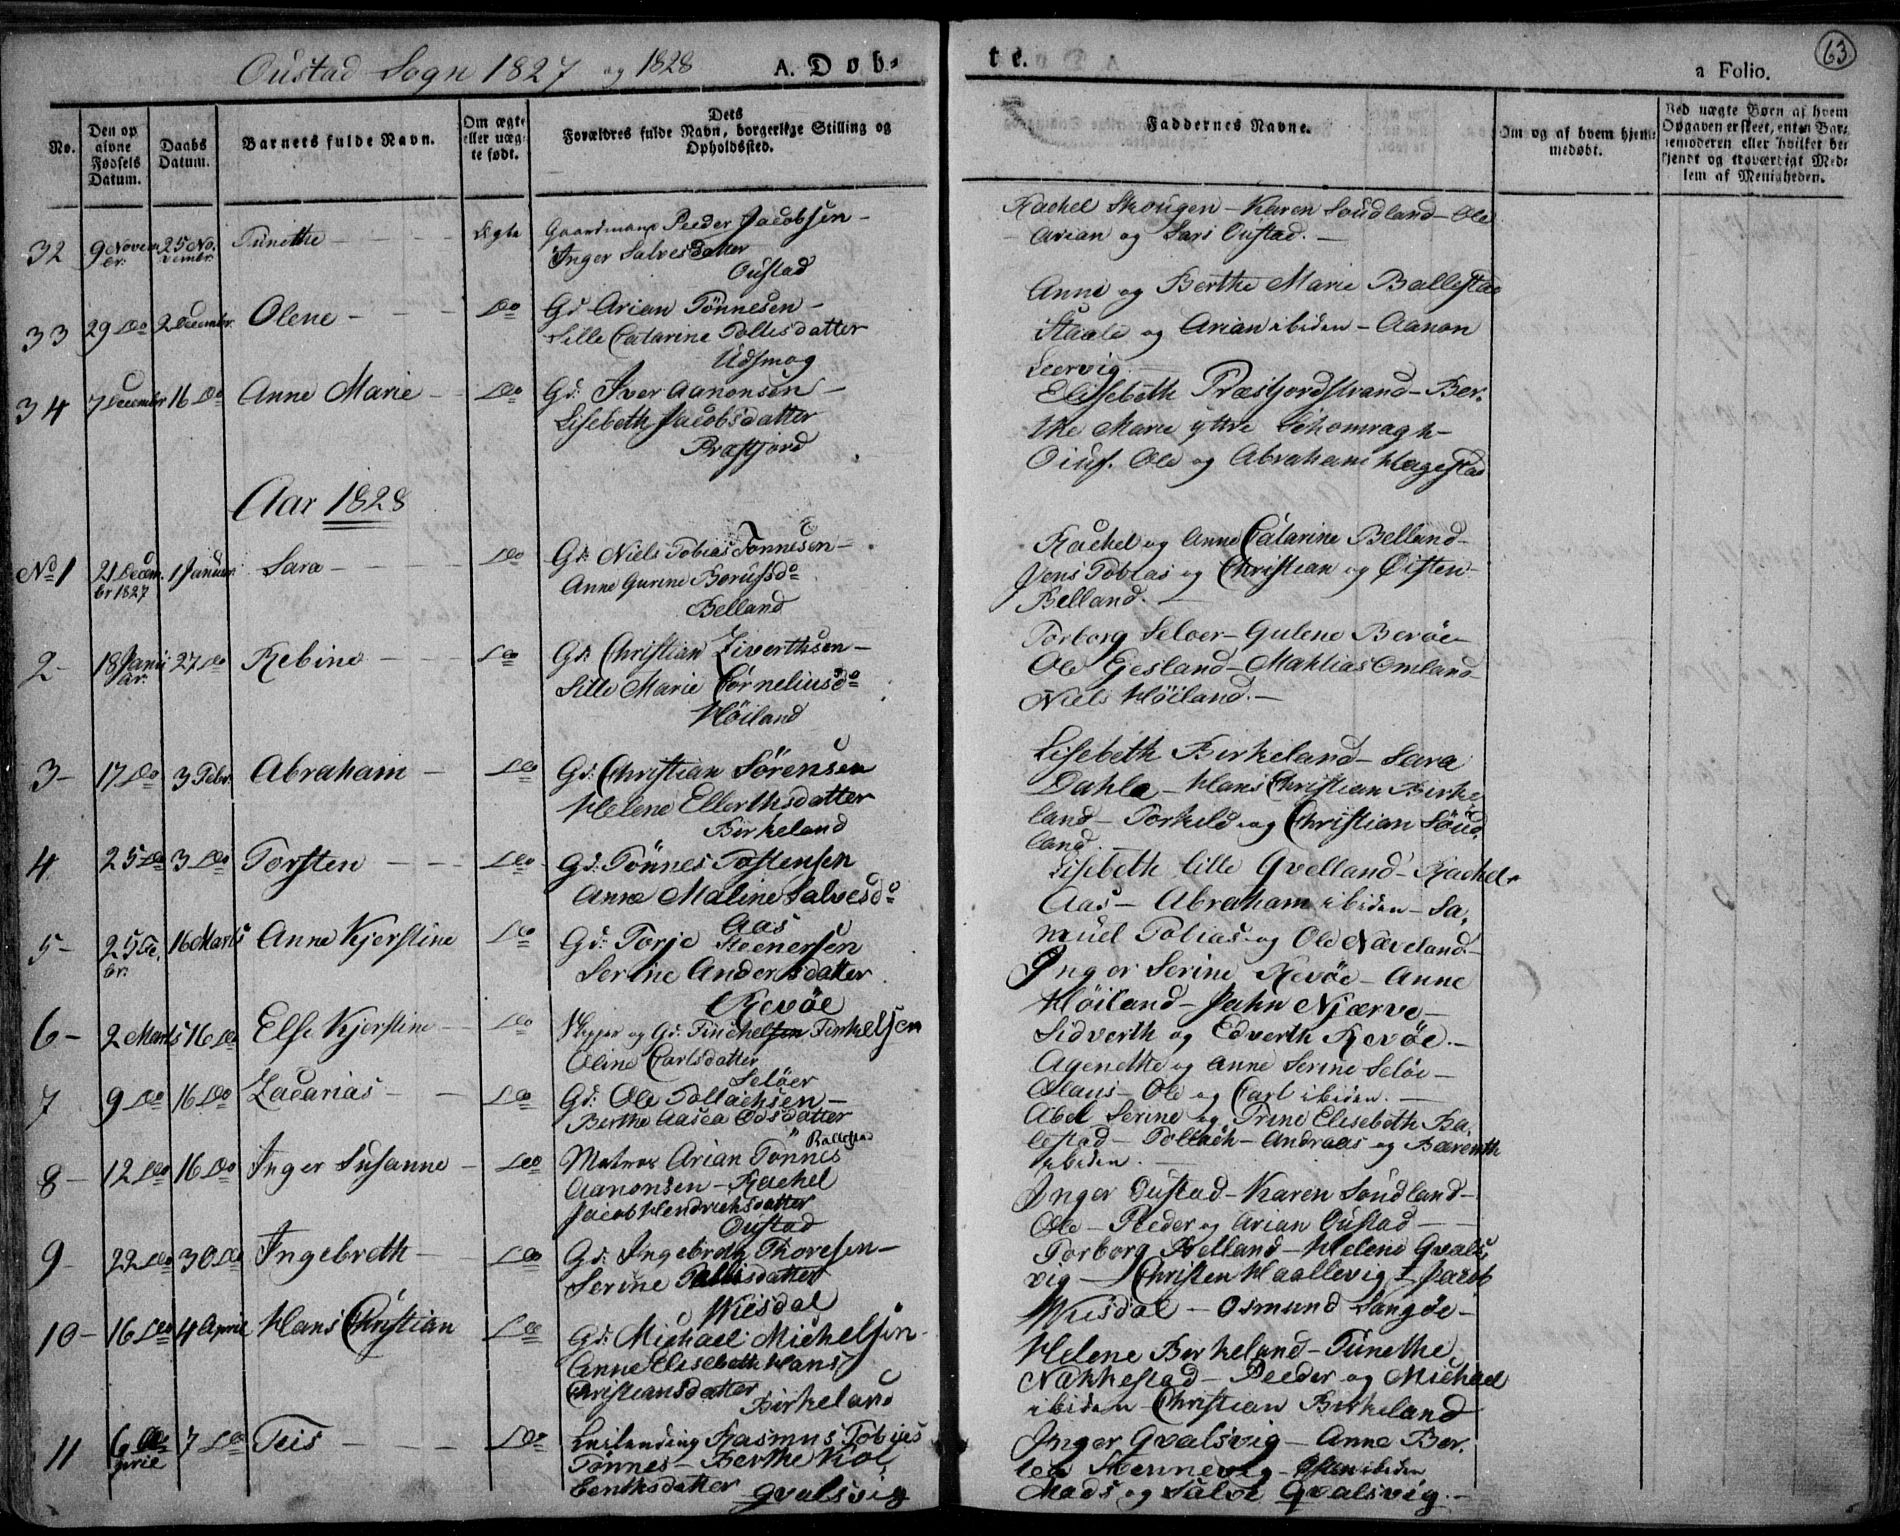 Oustad Sogn 1827 og 1828 A. Døb-
te. a Folio. 63
No. Den op
givne
Fødsels
Datum. Daabs
Datum. Barnets fulde Navn. Om ægte
eller uæg-
te født. Dets
Forældres fulde Navn, borgerlige Stilling og
Opholdssted. Faddernes Navne. Om og af hvem hjem-
medøbt. Ved uægte Børn af hvem
Opgaven er skeet, enten Bar-
nemoderen eller hvilket be-
kjendt og troværdigt Med-
lem af Menigheden.
32 9 Novem br. 25 No. vembr. Tunethe Ægte Gaardmand Peeder Jacobsen -
Inger Salvesdatter
Oustad
Rachel Skougen - Karen Soudland - Ole
Arian og Sari Oustad. -
33 29 Do 2 Decembr. Olene - Do Gd. Arian Tönnesen -
Lille Catarine Tollisdatter
Udsmog
Anne og Berthe Marie Ballestad
Staale og Arian ibiden - Aanon
Leervig. -
34 7 Decembr 16 Do Anne Marie - Do Gd: Iver Aanonsen -
Lisebeth Jacobsdatter
Præstfjord
Elisebeth Præstfjordstrand - Ber-
the Marie yttre
Ole og Abraham Hægestad
Aar 1828
No 1 21 Decem. br 1827 1 Januar Sara - Do Gd: Niels Tobias Tonnesen -
Anne Gurine Do
Belland
Rachel og Anne Catarine Belland -
Jens Tobias og Christian og Öisten
Belland. -
2 - 18 Janu ar. 27 Do Rebine - Do Gd: Christian Siverthsen -
Lille Marie Corneliusdo
Höiland
Torborg Seloer - Gulene Beröe -
Ole Gesland - Mathias Omland
Niels Höiland. -
3 - 17 Do 3 Febr. Abraham - Do Gd: Christian Sörensen
Helene Ellerthsdatter
Birkeland
Lisebeth Birkeland - Sara
Dahle - Hans Christian Birke
land - Torkeld og Christian Söud
land.
4 25 Do 3 Do Torsten - Do Gd: Tönnes Tostensen
Anne Maline Salvesdo
Aas
Lisebeth lille Qvelland - Rachel
Aas - Abraham ibiden - Sa-
muel Tobias og Ole Næveland -
5 - 25 Fe. br. 16 Marts Anne Kjerstine Do Gd: Torje Steenersen
Serine Andersdatter
Revöe
Inger Serine Revöe - Anne
Höiland - Jahn Njærve -
Sidverth og Edverth Revöe. -
6 - 2 Marts 16 Do Else Kjerstine - Do Skipper og Gd. Terkelsen
Oline Carlsdatter
Selöer
Agenethe og Anne Serine Selöe -
Olaus - Ole og Carl ibiden. -
7 9 Do 16 Do Zacarias - Do Gd: Ole Tollachsen -
Berthe Aasea Odsdatter
Ballestad
Abel Serine og Trine Elisebeth Ba-
lestad - Tollach - Andreas og Bærenth
ibiden. -
8 - 12 Do 16 Do Inger Susanne - Do Matros Arian Tönnes
Aanonsen - Rachel
Jacob Hendrichsdatter
Oustad
Inger Oustad - Karen Soudland -
Ole - Peeder og Arian Oustad -
9 - 22 Do 30 Do Ingebreth - Do Gd: Ingebreth Thoresen -
Serine Tallisdatter
Wiisdal
Torborg Helland - Helene Qvals-
vig - Christen Haallevig - Jacob
Wiisdal - Osmund Langöe -
10 - 16 Do 4 April Hans Christian Do Gd: Michael Michelsen -
Anne Elisebeth Hans
Christiansdatter
Birkeland
Helene Birkeland - Tunethe
Nækkestad - Peeder og Michael
ibiden - Christian Birkeland
11 6 April 7 Do Teis - Do Leilending Rasmus Tobias
Tönnes - Berthe
datter Qvalsvig
Inger Qvalsvig - Anne Ber-
Hennevig - Osten ibiden
Mads og Salve Qvalsvig. -